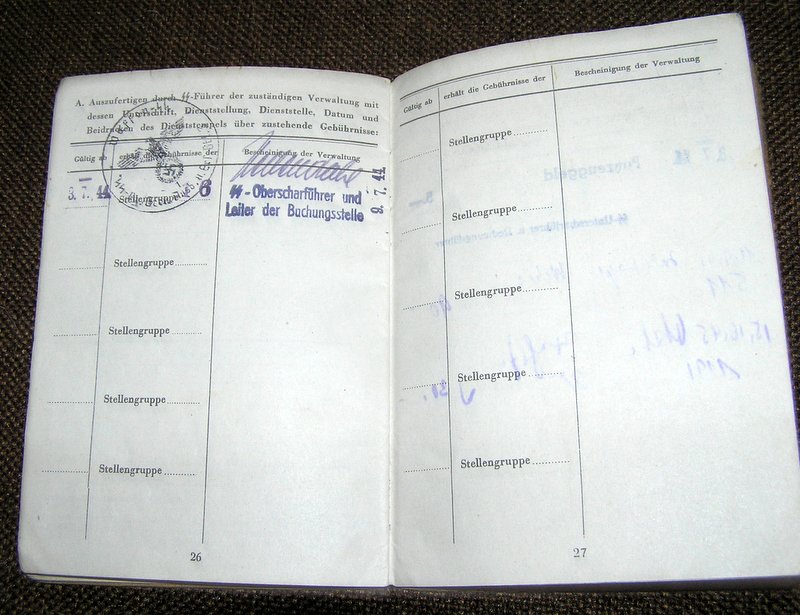 A. Auszufertigen durch ᛋᛋ-Führer der zuständigen Verwaltung mit
dessen Unterschrift, Dienststellung, Dienststelle, Datum und
Beidrücken des Dienststempels über zustehende Gebührnisse:
Gültig ab erhält die Gebührnisse der Bescheinigung der Verwaltung
3. 7. 44 Stellengruppe 6
ᛋᛋ-Oberscharführer und
Leiter der Buchungsstelle
9. 7. 44
Stellengruppe
Stellengruppe
Stellengruppe
Stellengruppe
26
Gültig ab erhält die Gebührnisse der Bescheinigung der Verwaltung
Stellengruppe
Stellengruppe
Stellengruppe
Stellengruppe
Stellengruppe
27